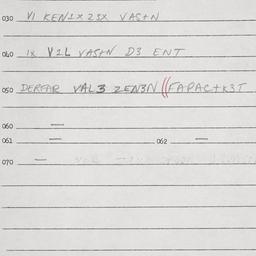 030 VI KEN1X 23X VAS+N
040 1X V2L VAS+N D3 ENT
050 DERFAR VAL3 ZEN3N ||FAPAC+K3T
060 —
061 — 062 —
070 —